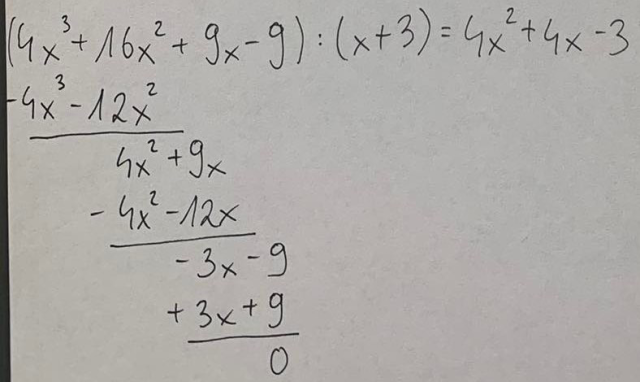 (4x³+16x²+9x-9):(x+3)=4x²+4x-3
-4x³-12x²
4x²+9x
-4x²-12x
-3x-9
+3x+9
0